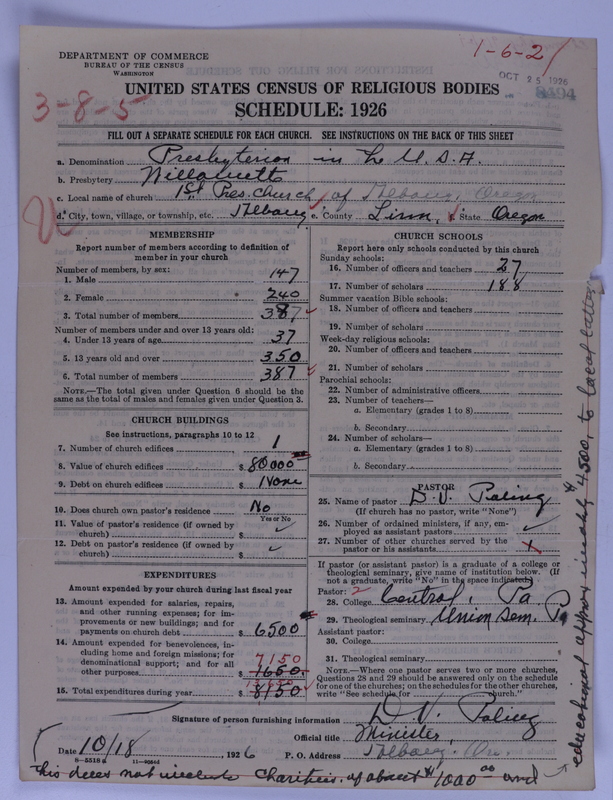 1-6-2
DEPARTMENT OF COMMERCE
BUREAU OF THE CENSUS
WASHINGTON
OCT 25 1926
8494
3-8-5
UNITED STATES CENSUS OF RELIGIOUS BODIES
SCHEDULE: 1926
FILL OUT A SEPARATE SCHEDULE FOR EACH CHURCH. SEE INSTRUCTIONS ON THE BACK OF THIS SHEET
a. Denomination Presbyterian in the U.S.A.
b. Presbytery Willamette
c. Local name of church 1st Pres. Church of Albany, Oregon
d. City, town, village, or township, etc. Albany e. County Linn, f. State Oregon
MEMBERSHIP
Report number of members according to definition of
member in your church
Number of members, by sex:
1. Male 147
2. Female 240
3. Total number of members 387
Number of members under and over 13 years old:
4. Under 13 years of age 37
5. 13 years old and over 350
6. Total number of members 387
NOTE.—The total given under Question 6 should be the
same as the total of males and females given under Question 3.
CHURCH BUILDINGS
See instructions, paragraphs 10 to 12
7. Number of church edifices 1
8. Value of church edifices $ 80000
9. Debt on church edifices $ None
10. Does church own pastor's residence No
Yes or No
11. Value of pastor's residence (if owned by
church) $
12. Debt on pastor's residence (if owned by
church) $
EXPENDITURES
Amount expended by your church during last fiscal year
13. Amount expended for salaries, repairs,
and other running expenses; for im-
provements or new buildings; and for
payments on church debt $ 6500
14. Amount expended for benevolences, in-
cluding home and foreign missions; for
denominational support; and for all
other purposes. $ 1650 7150
15. Total expenditures during year $ 8150
CHURCH SCHOOLS
Report here only schools conducted by this church
Sunday schools:
16. Number of officers and teachers 27
17. Number of scholars 188
Summer vacation Bible schools:
18. Number of officers and teachers
19. Number of scholars
Week-day religious schools:
20. Number of officers and teachers
21. Number of scholars
Parochial schools:
22. Number of administrative officers
23. Number of teachers—
a. Elementary (grades 1 to 8)
b. Secondary
24. Number of scholars—
a. Elementary (grades 1 to 8)
b. Secondary
PASTOR
25. Name of pastor D. V. Poling
(If church has no pastor, write "None")
26. Number of ordained ministers, if any, em-
ployed as assistant pastors
27. Number of other churches served by the
pastor or his assistants x
If pastor (or assistant pastor) is a graduate of a college or
theological seminary, give name of institution below. (If
not a graduate, write "No" in the space indicated.)
Pastor:
28. College Central, Pa
29. Theological seminary Union Sem. Pa
Assistant pastor:
30. College
31. Theological seminary
NOTE.—Where one pastor serves two or more churches,
Questions 28 and 29 should be answered only on the schedule
for one of the churches; on the schedules for the other churches,
write "See schedule for church."
Signature of person furnishing information D. V. Poling
Official title Minister,
Date 10/18, 1926 P. O. Address Albany. Ore.
8—5518 a
This does not include Charities of about $1000.00 and
educational approximately $4500. to local